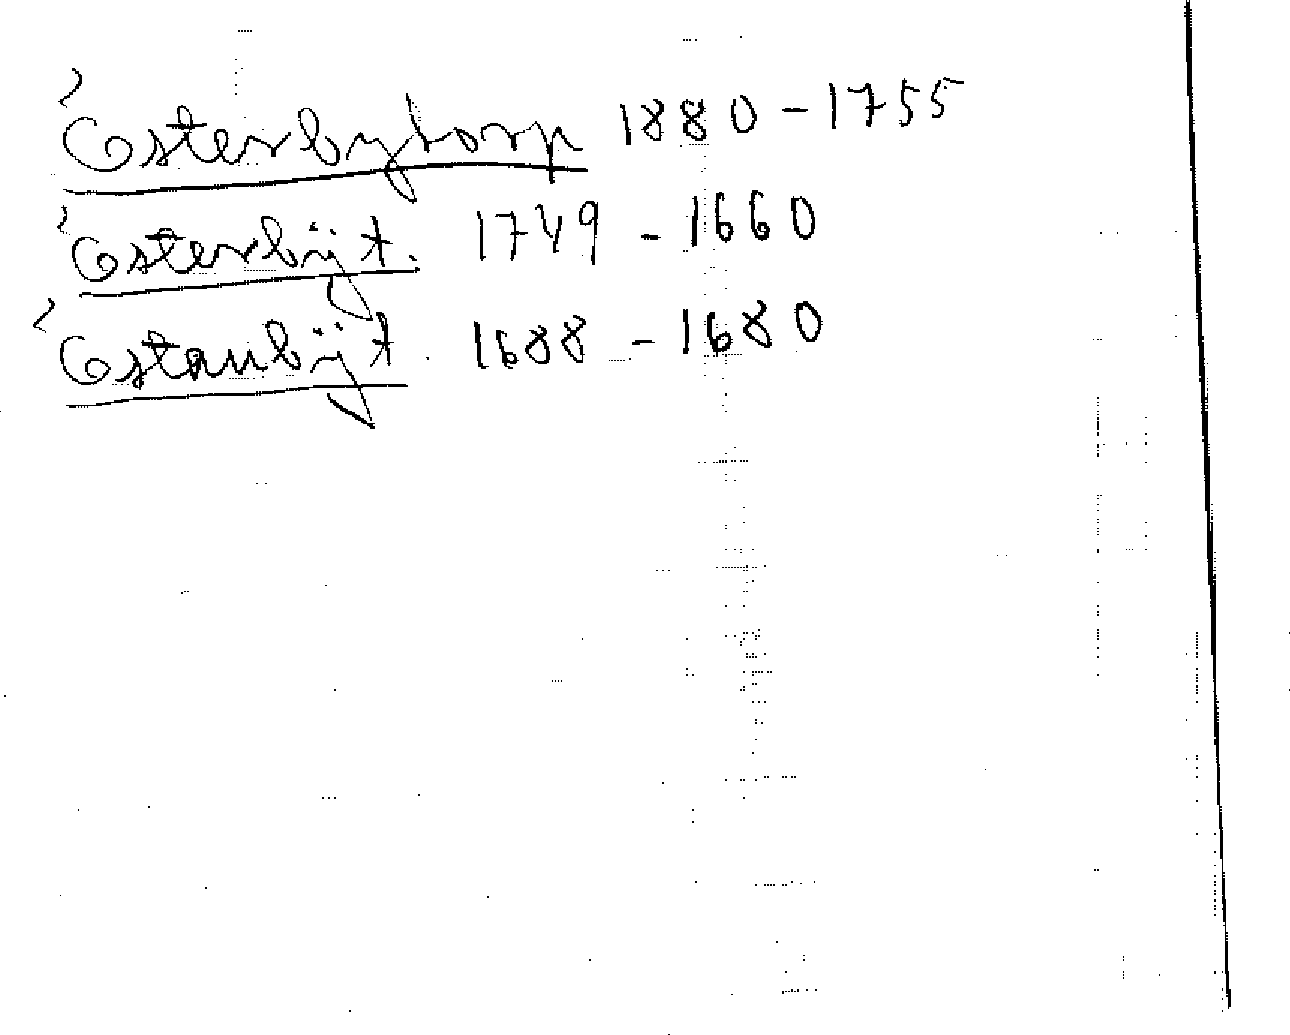 Österbytorp 1880 - 1755
Österbÿt. 1749 - 1660
Östanbÿt. 1688 - 1680